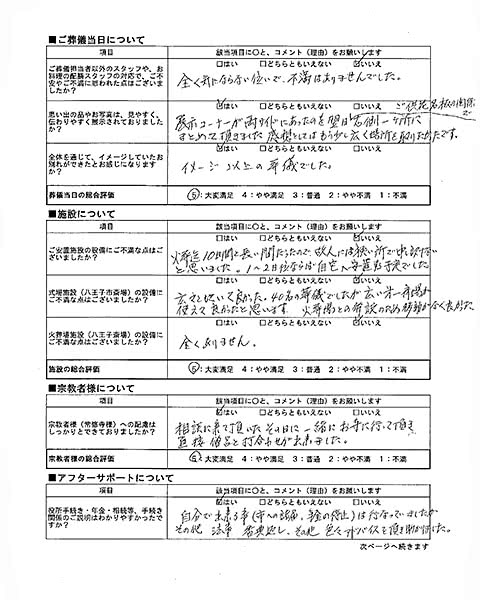 ■ご葬儀当日について
項目 該当項目に○と、コメント(理由)をお願いします
□はい □どちらともいえない □いいえ
ご葬儀担当者以外のスタッフや、お
料理の配膳スタッフの対応で、ご不
安やご不満に思われた点はございま
したか?
全く気にならない位いで、不満はありませんでした。
☑はい □どちらともいえない □いいえ
ご供花名札の関係で
思い出の品やお写真は、見やすく、
伝わりやすく展示されておりました
か?
展示コーナーが両サイドにあったのを翌日 右側一ヶ所に
まとめて頂きました 感想としてはもう少し広く場所を取りたかたです。
☑はい □どちらともいえない □いいえ
全体を通じて、イメージしていたお
別れができたとお感じになりました
か?
イメージ以上の葬儀でした。
葬儀当日の総合評価 ⑤:大変満足 4:やや満足 3:普通 2:やや不満 1:不満
■施設について
項目 該当項目に○と、コメント(理由)をお願いします
□はい □どちらともいえない □いいえ
ご安置施設の設備にご不満な点はご
ざいましたか?
火葬迄10日間と長い間だったので、故人には狭い所で申訳ない
と思いました。1〜2日位ならば自宅へ安置予定でした
□はい □どちらともいえない □いいえ
式場施設(八王子市斎場)の設備に
ご不満な点はございましたか?
広々としていて良かった。40名の葬儀でしたが広い第一斎場が
使えて良かったと思います 火葬場との併設のため移動がなく良かった
□はい □どちらともいえない □いいえ
火葬場施設(八王子斎場)の設備に
ご不満な点はございましたか?
全くありません。
施設の総合評価 ⑤:大変満足 4:やや満足 3:普通 2:やや不満 1:不満
■宗教者様について
項目 該当項目に○と、コメント(理由)をお願いします
☑はい □どちらともいえない □いいえ
宗教者様(常修寺様)への配慮は
しっかりとできておりましたか?
相談に来て頂いたその日に一緒にお寺に行って頂き
直接 住呂と打合わせが出来ました。
宗教者様の総合評価 ⑤:大変満足 4:やや満足 3:普通 2:やや不満 1:不満
■アフターサポートについて
項目 該当項目に○と、コメント(理由)をお願いします
☑はい □どちらともいえない □いいえ
役所手続き・年金・相続等、手続き
関係のご説明はわかりやすかったで
すか?
自分で出来る事(市への届出、年金の停止)は行なっていましたが
その他 法事 香典返し、その他 色々アドバイスを頂き助かりました。
次ページへ続きます